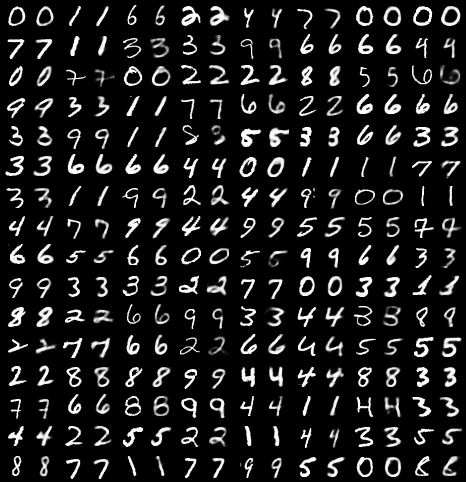 0 0 1 1 6 6 2 2 4 4 7 7 0 0 0 0
7 7 1 1 3 3 3 3 9 9 6 6 6 6 4 4
0 0 7 7 0 0 2 2 2 2 8 8 5 5 6 6
9 9 3 3 1 1 7 7 6 6 2 2 6 6 6 6
3 3 9 9 1 1 8 8 5 5 3 3 6 6 3 3
3 3 6 6 6 6 4 4 0 0 1 1 1 1 7 7
3 3 1 1 9 9 2 2 4 4 9 9 0 0 1 1
4 4 7 7 9 9 4 4 9 9 5 5 5 5 7 7
6 6 5 5 6 6 0 0 5 5 9 9 6 6 3 3
9 9 3 3 3 3 2 2 7 7 0 0 3 3 1 1
8 8 2 2 6 6 9 9 3 3 4 4 3 3 8 8
2 2 7 7 6 6 2 2 6 6 4 4 5 5 5 5
2 2 8 8 8 8 9 9 4 4 4 4 8 8 3 3
7 7 6 6 8 8 9 9 4 4 1 1 4 4 3 3
4 4 2 2 5 5 2 2 1 1 4 4 3 3 5 5
8 8 7 7 1 1 7 7 9 9 5 5 0 0 8 8